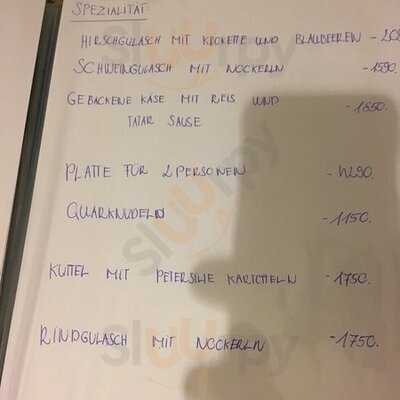 SPEZIALITÄT
HIRSCHGULASCH MIT KROKETTE UND BLAUBEEREN -
SCHWEINGULASCH MIT NOCKERLN -1590.
GEBACKENE KÄSE MIT REIS UND -1650.
TATAR SAUSE
PLATTE FÜR 2 PERSONEN
QUARKNUDELN -1150.
KUTTEL MIT PETERSILIE KARTOFFELN -1750.
RINDGULASCH MIT NOCKERLN -1750.
sluurpy
sluurpy
sluurpy